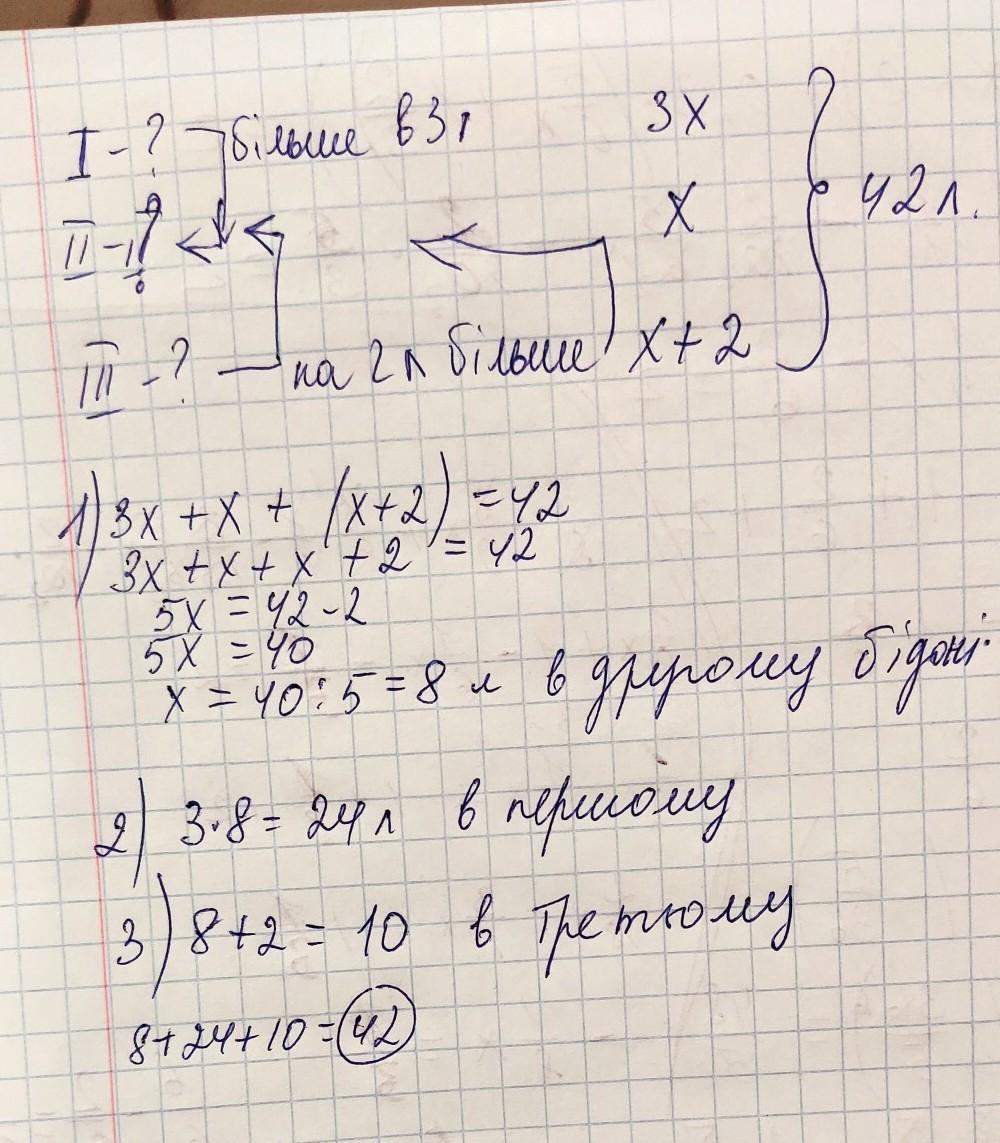 I - ? більше в 3 р 3x
II - ? x 42 л.
III - ? на 2 л більше x + 2
1) 3x + x + (x+2) = 42
3x + x + x + 2 = 42
5x = 42 - 2
5x = 40
x = 40 : 5 = 8 л в другому бідоні.
2) 3·8 = 24 л в першому
3) 8 + 2 = 10 в третьому
8 + 24 + 10 = 42